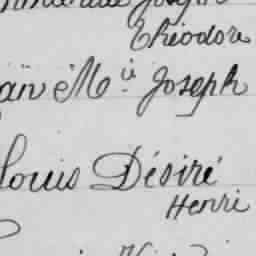 Joseph
Théodore
Mie Joseph
Louis Désiré
Henri